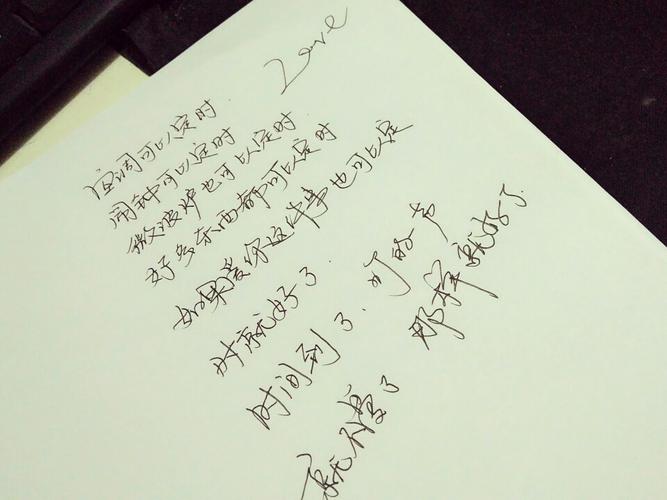 Love
空调可以定时
闹钟可以定时
微波炉也可以定时
好多东西都可以定时
如果爱你这件事也可以定
时就好了
时间到了.叮的声
就不爱了
那样就好了.